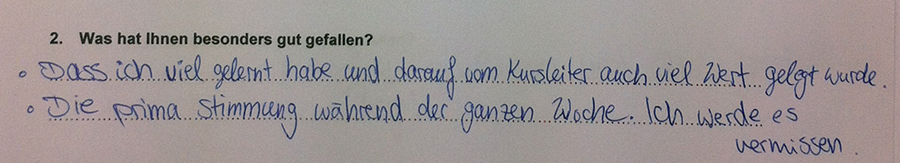 2. Was hat Ihnen besonders gut gefallen?
• Dass ich viel gelernt habe und darauf vom Kursleiter auch viel Wert gelegt wurde.
• Die prima Stimmung während der ganzen Woche. Ich werde es
vermissen.